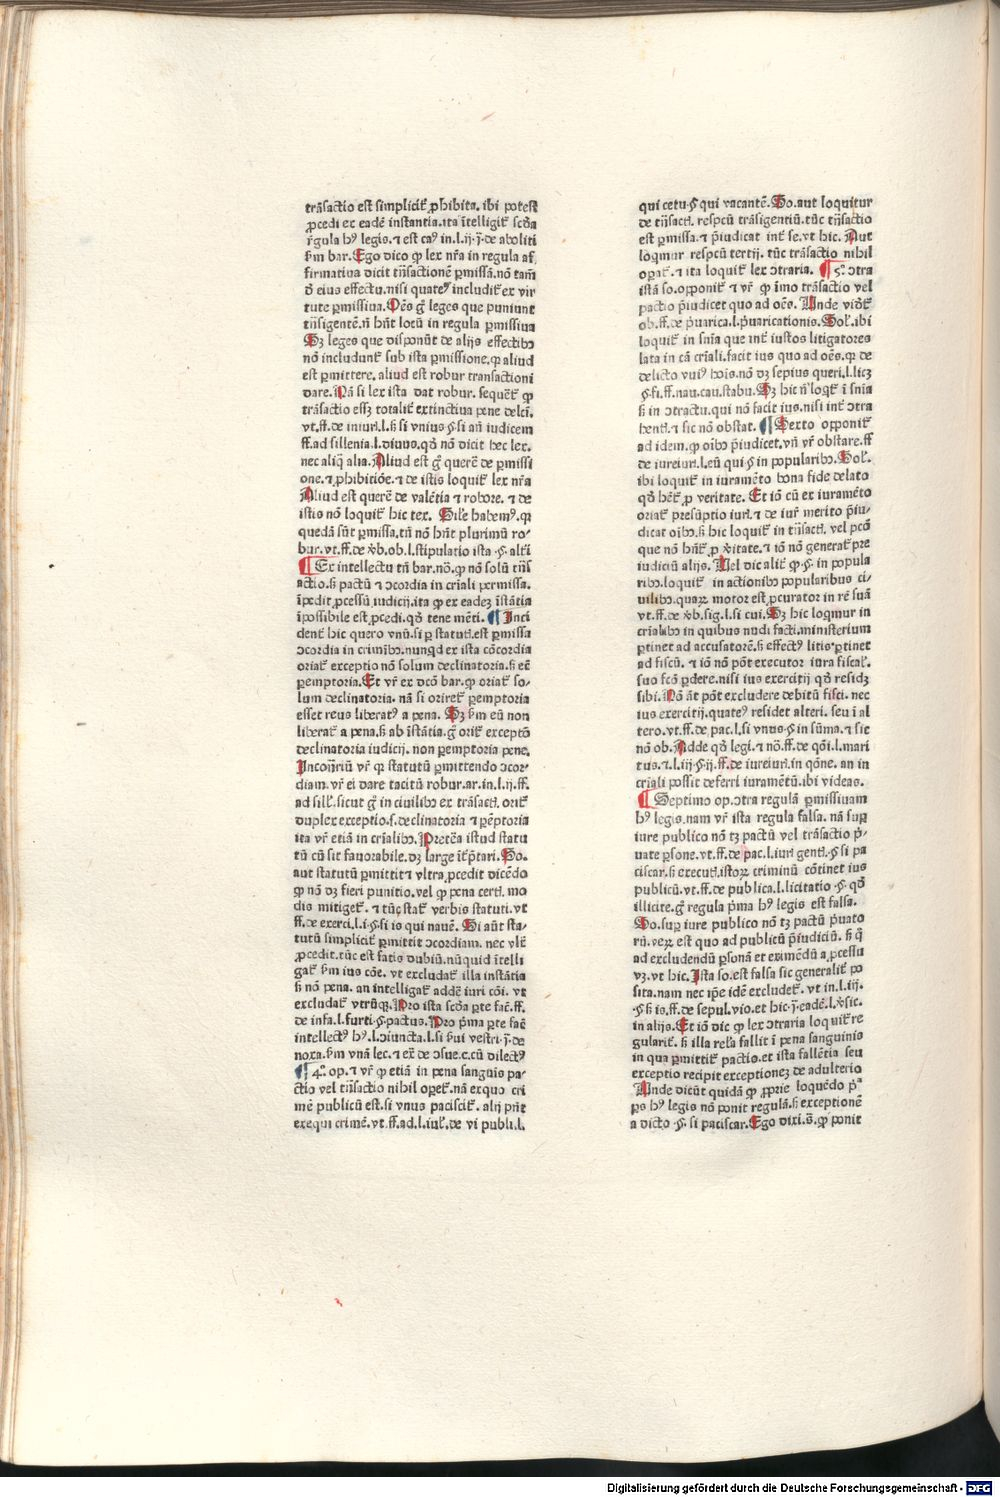 trãsactio est simpliciť ꝓhibita. ibi potest
ꝓcedi ex eadẽ instantia. ita ĩtelligiť scďa
r̃gula hꝰ legis. ⁊ est caꝰ in. l. ij. ÿ. de aboliti
ẜm bar. Ego dico ꝙ lex nr̃a in regula af
firmatiua dicit trĩsactionẽ ꝑmissã. nõ tam̃
ď eius effectu. nisi quateꝰ includiť ex vir
tute ꝑmissiua. Oẽs ǧ leges que puniunt
trĩsigentẽ. ñ hñt locũ in regula ꝑmissiua
Sꝫ leges que disponũt de alijs effectibꝰ
nõ includunť sub ista ꝑmissione. ꝙ aliud
est ꝑmittere. aliud est robur transactioni
dare. Nã si lex ista dat robur. sequeť ꝙ
trãsactio essꝫ totaliť extinctiua pene delcĩ.
vt. ff. de iniuri. l. ꝗ si vnius. §. si añ iudicem
ff. ad sillenia. l. diuus. qď nõ dicit hec lex.
nec aliq̃ alia. Aliud est ǧ querẽ de ꝑmissi
one. ⁊ ꝓhibitiõe. ⁊ de istis loquiť lex nr̃a
Aliud est querẽ de valẽtia ⁊ robore. ⁊ de
istis nõ loquiť hic tex. Sil̃e habemꝰ. ꝙ
quedã sũt ꝑmissa. tñ nõ hñt plurimũ ro-
bur. vt. ff. de v̓b. ob. l. stipulatio ista. §. alťi
¶ Ex intellectu tñ bar. nõ. ꝙ nõ solũ trĩs
actio. ẜ pactũ ⁊ ↄcordia in crĩali permissa.
ĩpedit ꝓcessũ iudicij. ita ꝙ ex eadeꝫ ĩstãtia
ĩpossibile est ꝓcedi. qď tene mẽti. ¶ Inci
denť hic quero vnũ. si ꝑ statuti. est ꝑmissa
ↄcordia in crimĩbꝰ. nunqd ex ista cõcordia
oriať exceptio nõ solum declinatoria. ẜ eť
ꝑemptoria. Et vr̃ ex dcõ bar. ꝙ oriať so-
lum declinatoria. nã si orireť ꝑemptoria
esset reus liberatꝰ a pena. Sꝫ ẜm eũ non
liberať a pena. ẜ ab ĩstãtia. ǧ oriť exceptõ
declinatoria iudicij. non ꝑemptoria pene.
Incõr̃iũ vr̃ ꝙ statutũ ꝑmittendo ↄcor-
diam. vr̃ ei dare tacitũ robur. ar. in. l. ij. ff.
ad sill̃. sicut ǧ in ciuilibꝰ ex trãsacti. oriť
duplex exceptio. s. declinatoria ⁊ ꝑẽptoria
ita vr̃ etiã in crĩalibꝰ. Pretẽa istud statu
tũ cũ sit fauorabile. dꝫ large ĩťp̃tari. So.
aut statutũ ꝑmittit ⁊ vltra ꝓcedit dicẽdo
ꝙ nõ dꝫ fieri punitio. vel ꝙ pena certi. mo
dis mitigeť. ⁊ tũc stať verbis statuti. vt
ff. de exerci. l. i. §. si is qui nauẽ. Si aũt sta-
tutũ simpliciť ꝑmittit ↄcordiam. nec vlť
ꝓcedit. tũc est satis dubiũ. nũquid ĩtelli
gať ẜm ius cõe. vt excludať illa instãtia
ẜ nõ pena. an intelligať addẽ iuri cõi. vt
excludať vtrũꝗ. Pro ista scďa ꝑte faẽ. ff.
de infa. l. furti. §. pactus. Pro p̃ma ꝑte faẽ
intellectꝰ hꝰ. l. ↄiuncta. l. si ẜui vestri. ÿ. de
noxa. ẜm vnã lec. ⁊ ex̃ de ↄsue. c. cũ dilectꝰ
¶ 4ᵒ. op. ⁊ vr̃ ꝙ etiã in pena sanguĩs pa-
ctio vel trĩsactio nihil oꝑeť. nã exquo cri
mẽ publicũ est. si vnus pacisciť. alij pñt
exequi crimẽ. vt. ff. ad. l. iul̃. de vi publi. l.
qui cetu. §. qui vacantẽ. So. aut loquitur
de trĩsacti. respcũ trãsigentiũ. tũc trĩsactio
est ꝑmissa. ⁊ p̃iudicat inť se. vt hic. Aut
loq̃mur respcũ tertij. tũc trãsactio nihil
oꝑať. ⁊ ita loquiť lex ↄtraria. ¶ 5ᵒ. ↄtra
istã so. opponiť ⁊ vr̃ ꝙ ĩmo trãsactio vel
pactio p̃iudicet quo ad oẽs. Unde vidẽť
ob. ff. de p̃uarica. l. p̃uaricationis. Sol̃. ibi
loquiť in sñia que inť iustos litigatores
lata in cã crĩali. facit ius quo ad oẽs. ꝙ de
delicto vniꝰ hoĩs. nõ dꝫ sepius queri. l. licꝫ
§. fi. ff. nau. cau. stabu. Sꝫ hic ñ loqť ĩ sñia
ẜ in ↄtractu. qui nõ facit ius. nisi inť ↄtra
henti. ⁊ sic nõ obstat. ¶ Sexto opponiť
ad idem. ꝙ oĩbꝰ p̃iudicet. vñ vr̃ obstare. ff
de iureiuri. l. eũ qui. §. in popularibꝰ. Sol̃.
ibi loquiť in iuramẽto bona fide delato
qď hẽť ꝓ veritate. Et iõ cũ ex iuramẽto
oriať presũptio iuri. ⁊ de iur̃ merito p̃iu-
dicat oĩbꝰ. ẜ hic loquiť in trĩsacti. vel pcõ
que nõ hñť ꝓ v̓itate. ⁊ iõ nõ generať pre
iudiciũ alijs. Uel dic aliť ꝙ. §. in popula
ribꝰ. loquiť in actionibꝰ popularibus ci-
uilibꝰ. quaꝝ motor est ꝓcurator in rẽ suã
vt. ff. de v̓b. sig. l. si cui. Sꝫ hic loq̃mur in
crĩalibꝰ in quibus nudi facti. ministerium
ꝑtinet ad accusatorẽ. ẜ effectꝰ litis ꝑtinet
ad fiscũ. ⁊ iõ nõ põt executor iura fiscal̃.
suo fcõ ꝑdere. nisi ius exercitij qď residꝫ
sibi. Nõ ãt põt excludere debitũ fisci. nec
ius exercitij. quateꝰ residet alteri. seu ĩ al
tero. vt. ff. de pac. l. si vnus. §. in sũma. ⁊ sic
nõ ob. Adde qď legi. ⁊ nõ. ff. de qõi. l. mari
tus. ⁊. l. iij. §. ij. ff. de iureiuri. in qõne. an in
crĩali possit deferri iuramẽtũ. ibi videas.
¶ Septimo op. ↄtra regulã ꝑmissiuam
hꝰ legis. nam vr̃ ista regula falsa. nã suꝑ
iure publico nõ tꝫ pactũ vel trãsactio p̃-
uate ꝑsone. vt. ff. de pac. l. iuri genti. §. si pa
ciscar. ẜ executi. istoꝝ criminũ cõtinet ius
publicũ. vt. ff. de publica. l. licitatio. §. qď
illicite. ǧ regula p̃ma hꝰ legis est falsa.
So. suꝑ iure publico nõ tꝫ pactũ p̃uato
rũ. veꝝ est quo ad publicũ p̃iudiciũ. ẜ q̃
ad excludendũ ꝑsonã et eximẽdũ a ꝓcessu
vꝫ. vt hic. Ista so. est falsa sic generaliť po
sita. nam nec ip̃e idẽ excludeť. vt in. l. iij.
.§. ẜ is. ff. de sepul. vio. et hic. ÿ. eadẽ. l. v̓sic.
in alijs. Et iõ dic ꝙ lex ↄtraria loquiť re
gulariť. ẜ illa rel̃a fallit ĩ pena sanguinis
in qua ꝑmittiť pactio. et ista fallẽtia seu
exceptio recipit exceptioneꝫ de adulterio
Unde dicũt quidã ꝙ ꝓprie loquẽdo p̃ᵃ
ꝑs hꝰ legis nõ ponit regulã. ẜ exceptionẽ
a dicto. §. si paciscar. Ego dixi. s̃. ꝙ ponit
Digitalisierung gefördert durch die Deutsche Forschungsgemeinschaft - DFG